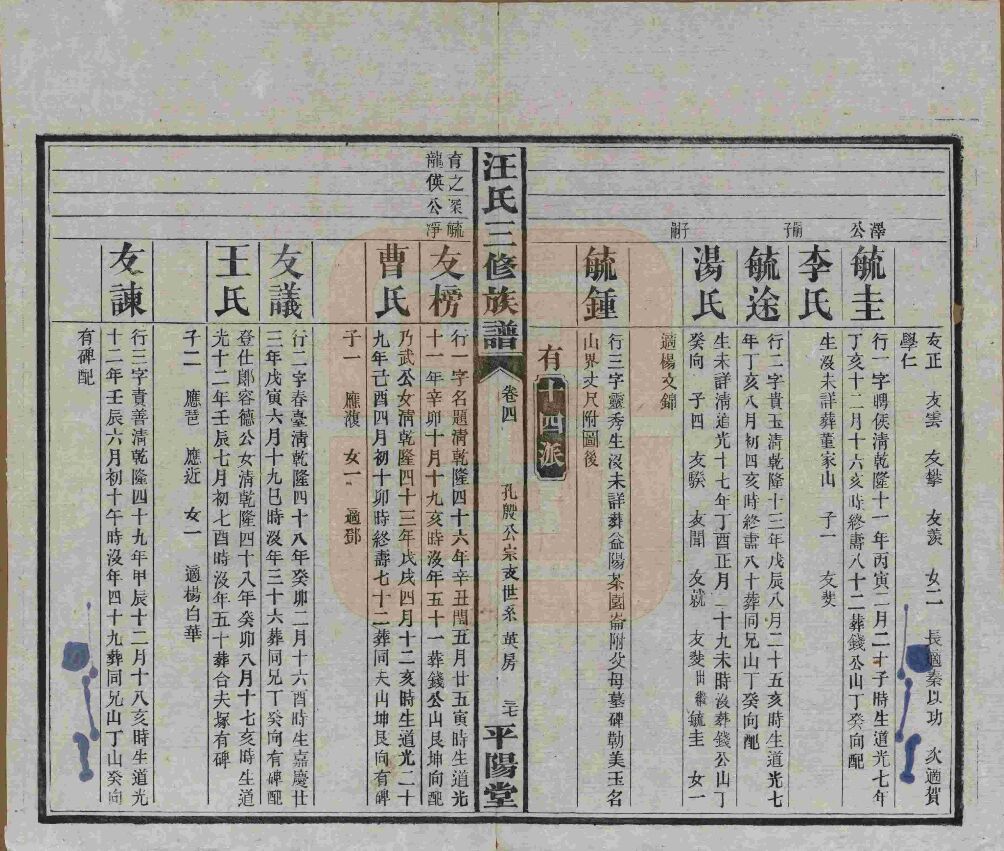 友正　友雲　友攀　友羨　女二　長適秦以功　次適賀
學仁
澤
公
毓圭
行一字聘侯清乾隆十一年丙寅二月二十子時生道光七年
丁亥十二月十六亥時終壽八十二葬錢公山丁癸向配
李氏
生沒未詳葬董家山　子一　友㸚
毓途
行二字貴玉清乾隆十三年戊辰八月二十五亥時生道光七
年丁亥八月初四亥時終壽八十葬同兄山丁癸向配
湯氏
生未詳清道光十七年丁酉正月二十九未時沒葬錢公山丁
癸向　子四　友騤　友聞　友就　友㸚出繼毓圭　女一
適楊文錦
毓鍾
行三字靈秀生沒未詳葬益陽茶園崙附父母墓碑勒美玉名
山界丈尺附圖後
有十四派
汪氏三修族譜
卷四
孔殷公宗支世系英房
三七
平陽堂
育之深毓
龍俠公淨
友榜
行一字名題清乾隆四十六年辛丑閏五月廿五寅時生道光
十一年辛卯十月十九亥時沒年五十一葬錢公山艮坤向配
曹氏
乃武公女清乾隆四十三年戊戌四月十二亥時生道光二十
九年己酉四月初十卯時終壽七十二葬同夫山坤艮向有碑
子一　應澓　女一　適鄧
友議
行二字春臺清乾隆四十八年癸卯二月十六酉時生嘉慶廿
三年戊寅六月十九巳時沒年三十六葬同兄丁癸向有碑配
王氏
登仕郎容德公女清乾隆四十八年癸卯八月十七亥時生道
光十二年壬辰七月初七酉時沒年五十葬合夫塚有碑
子二　應琶　應近　女一　適楊白華
友諫
行三字責善清乾隆四十九年甲辰十二月十八亥時生道光
十二年壬辰六月初十午時沒年四十九葬同兄山丁山癸向
有碑配